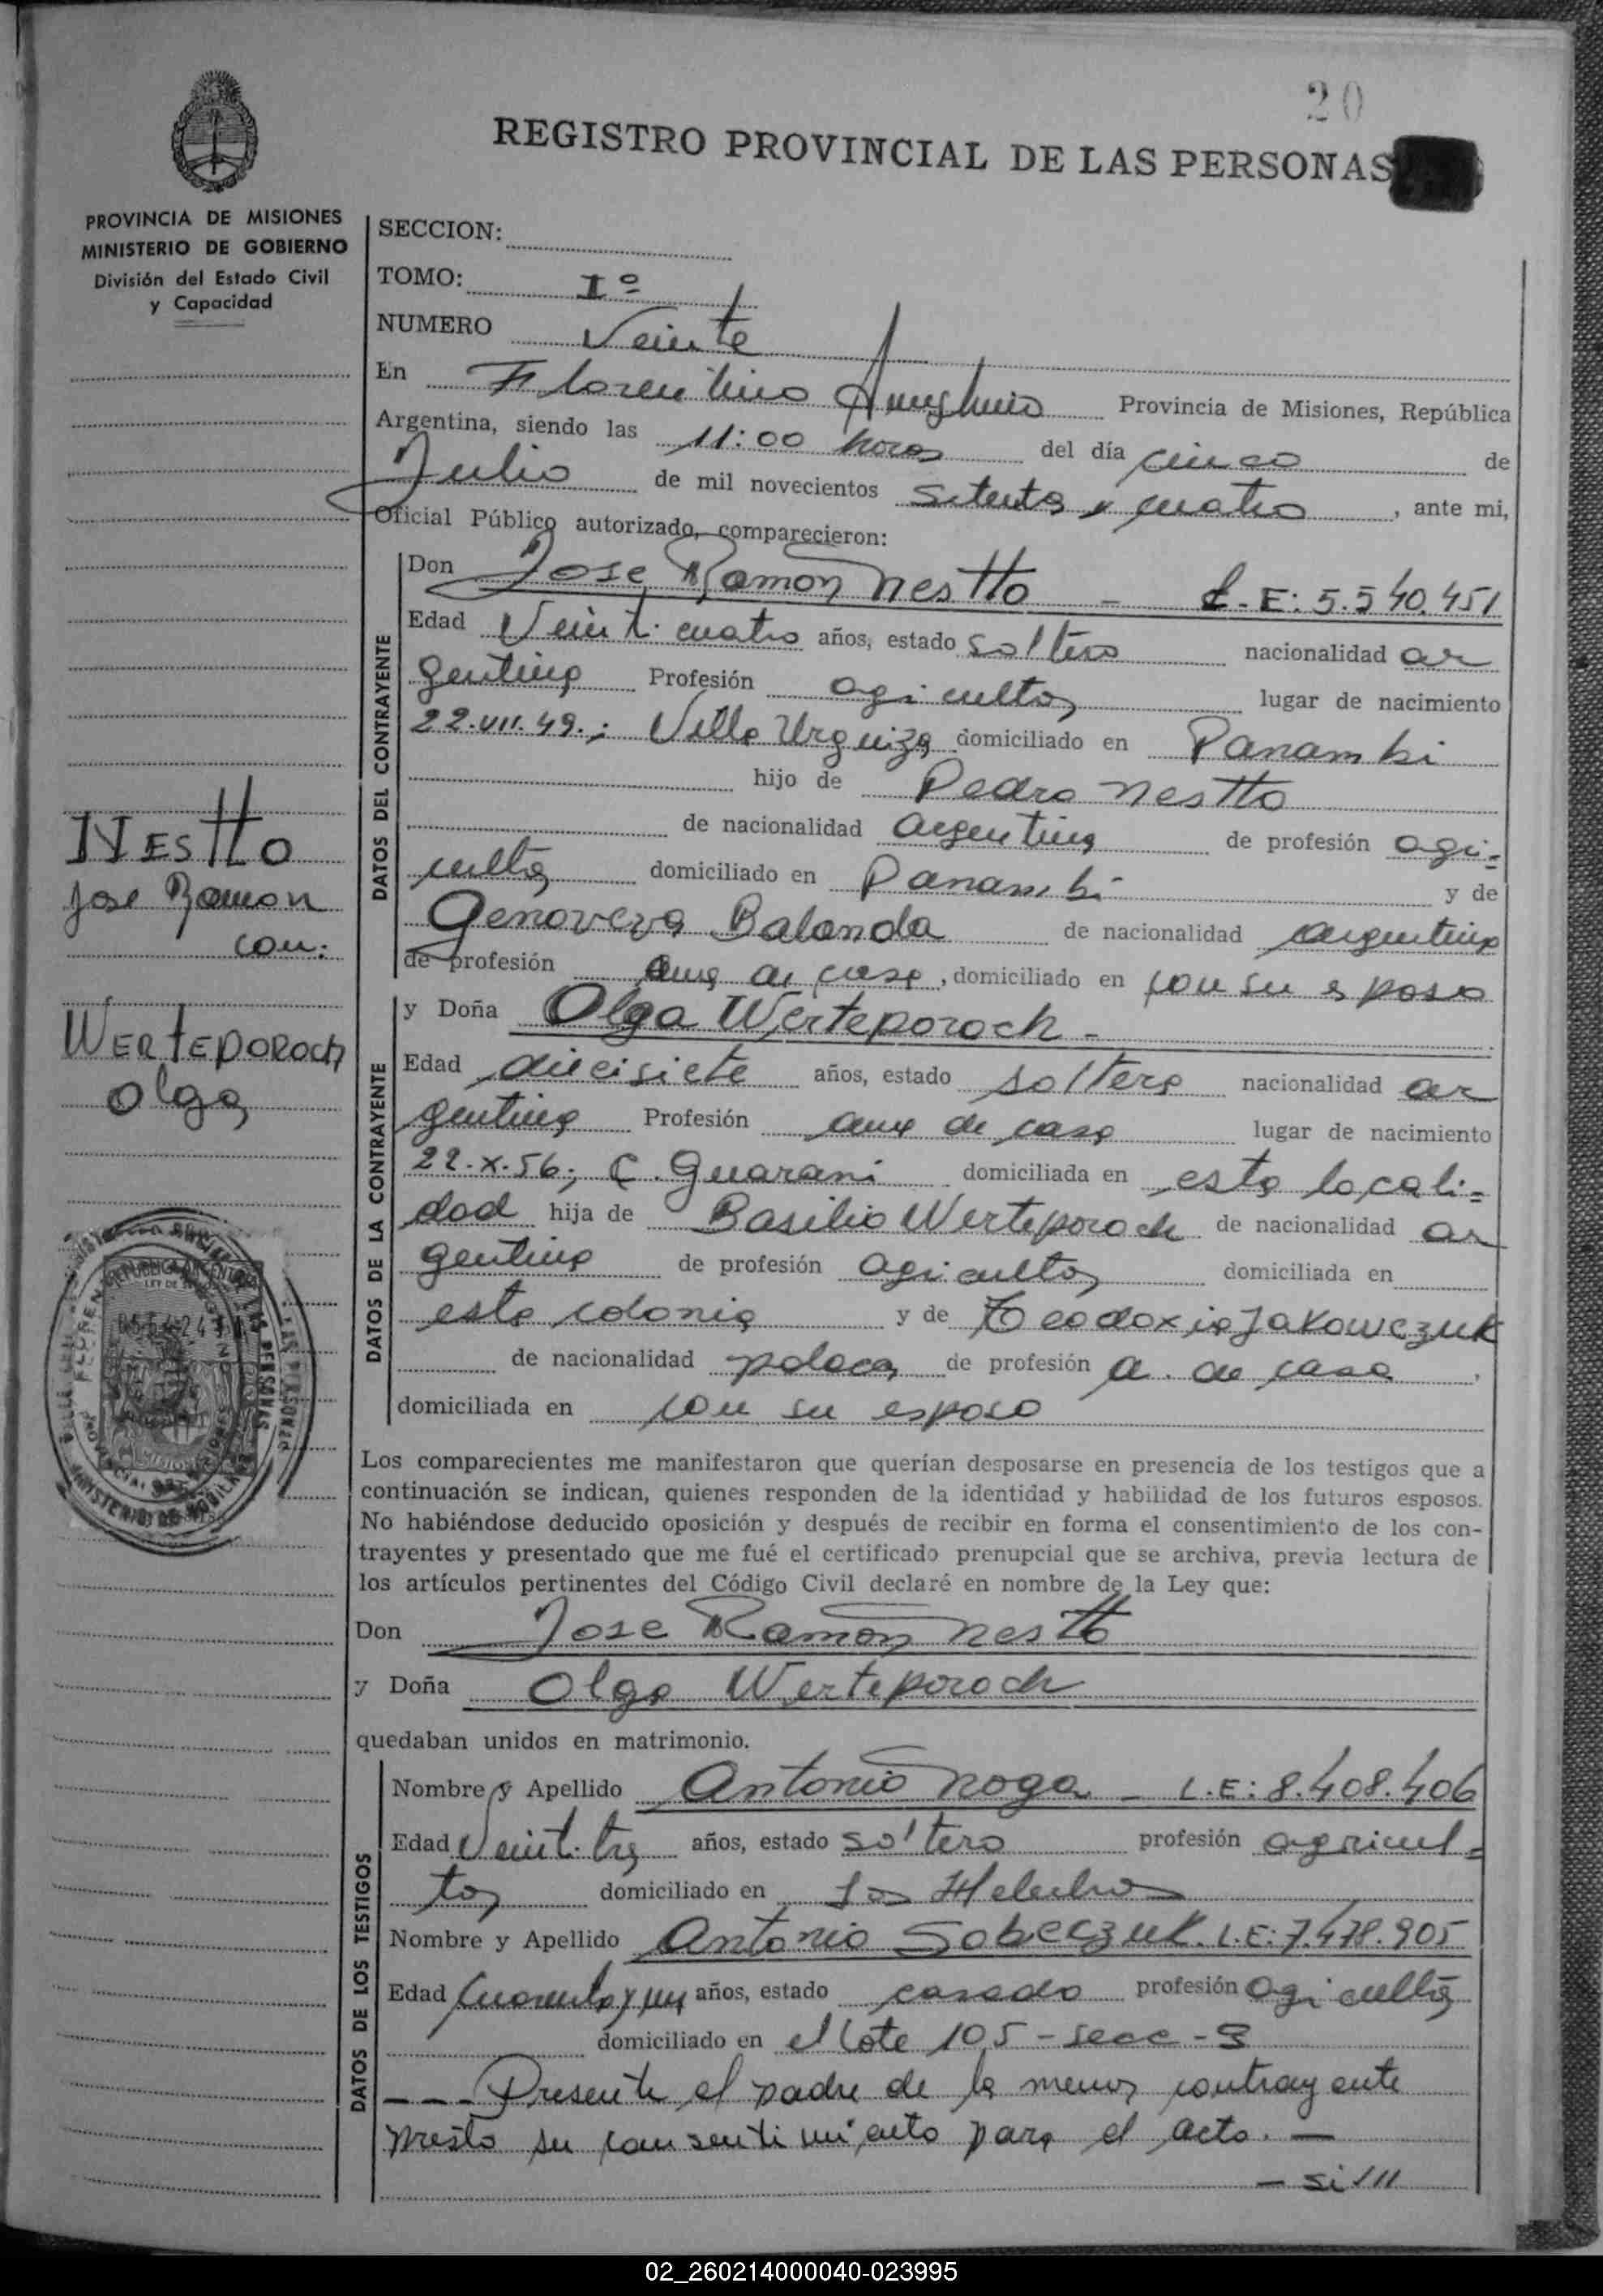 20
REGISTRO PROVINCIAL DE LAS PERSONAS
PROVINCIA DE MISIONES
MINISTERIO DE GOBIERNO
División del Estado Civil
y Capacidad
SECCION:
TOMO: Iº
NUMERO Veinte
En Florentino Ameghino Provincia de Misiones, República
Argentina, siendo las 11:00 horas del día cinco de
Julio de mil novecientos setenta y cuatro, ante mi,
Oficial Público autorizado, comparecieron:
DATOS DEL CONTRAYENTE
Don Jose Ramon Nestto - L.E: 5.540.451
Edad Veinti cuatro años, estado soltero nacionalidad ar
gentina Profesión agricultor lugar de nacimiento
22.VII.49.; Villa Urquiza domiciliado en Panambi
hijo de Pedro Nestto
de nacionalidad argentina de profesión agri=
cultor domiciliado en Panambi y de
Genoveva Balanda de nacionalidad argentina
de profesión ama de casa, domiciliado en con su esposo
NEStto
Jose Ramon
con:
WERtEPOROch
Olga
DATOS DE LA CONTRAYENTE
y Doña Olga Werteporoch -
Edad diecisiete años, estado soltera nacionalidad ar
gentina Profesión ama de casa lugar de nacimiento
22.X.56; C. Guarani domiciliada en esta locali=
dad hija de Basilio Werteporoch de nacionalidad ar
gentina de profesión agricultor domiciliada en
esta colonia y de Teodoxia Jakowczuk
de nacionalidad polaca de profesión a. de casa,
domiciliada en con su esposo
Los comparecientes me manifestaron que querían desposarse en presencia de los testigos que a
continuación se indican, quienes responden de la identidad y habilidad de los futuros esposos.
No habiéndose deducido oposición y después de recibir en forma el consentimiento de los con-
trayentes y presentado que me fué el certificado prenupcial que se archiva, previa lectura de
los artículos pertinentes del Código Civil declaré en nombre de la Ley que:
Don Jose Ramon Nestto
y Doña Olga Werteporoch
quedaban unidos en matrimonio.
DATOS DE LOS TESTIGOS
Nombre y Apellido Antonio Noga - L.E: 8.408.406
Edad Veinti tres años, estado soltero profesión agricul=
tor domiciliado en Los Helechos
Nombre y Apellido Antonio Sobeczuk. L.E: 7.478.905
Edad Cuarenta y un años, estado casado profesión agricultor
domiciliado en el lote 105 - secc - 3
--- Presente el padre de la menor contrayente
presto su consentimiento para el acto. —
- si///
02_260214000040-023995